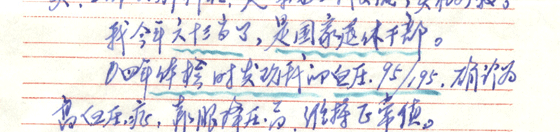 我今年六十三岁了，是国家退休干部。
04年体检时发功科的血压.95/195.确诊为
高血压症，靠服降压药，维持正常值。